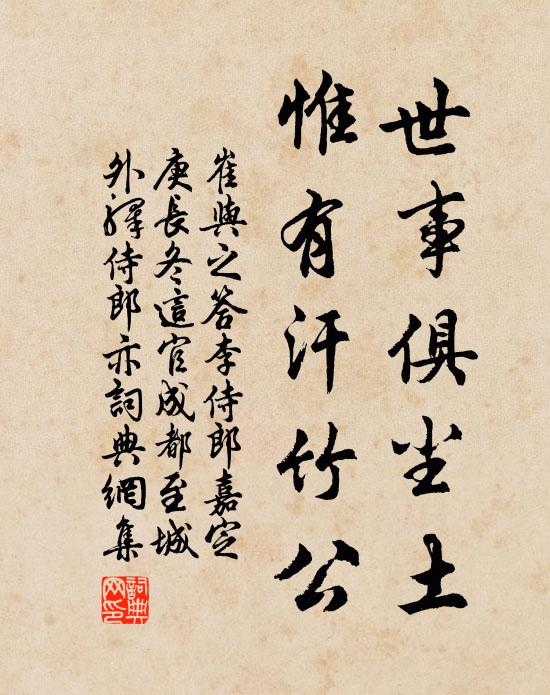 世事俱尘土
惟有汗竹公
崔與之答李侍郎嘉定
庚長冬這官成都至城
外釋侍郎亦詞典網集
詞典網印